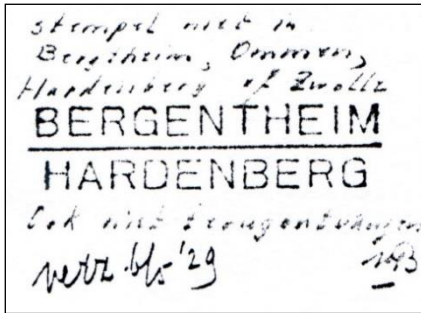 stempel niet in
Bergtheim, Ommen,
Hardenberg of Zwolle
BERGENTHEIM
HARDENBERG
Ook niet terugontvangen
verz 6/5 '29